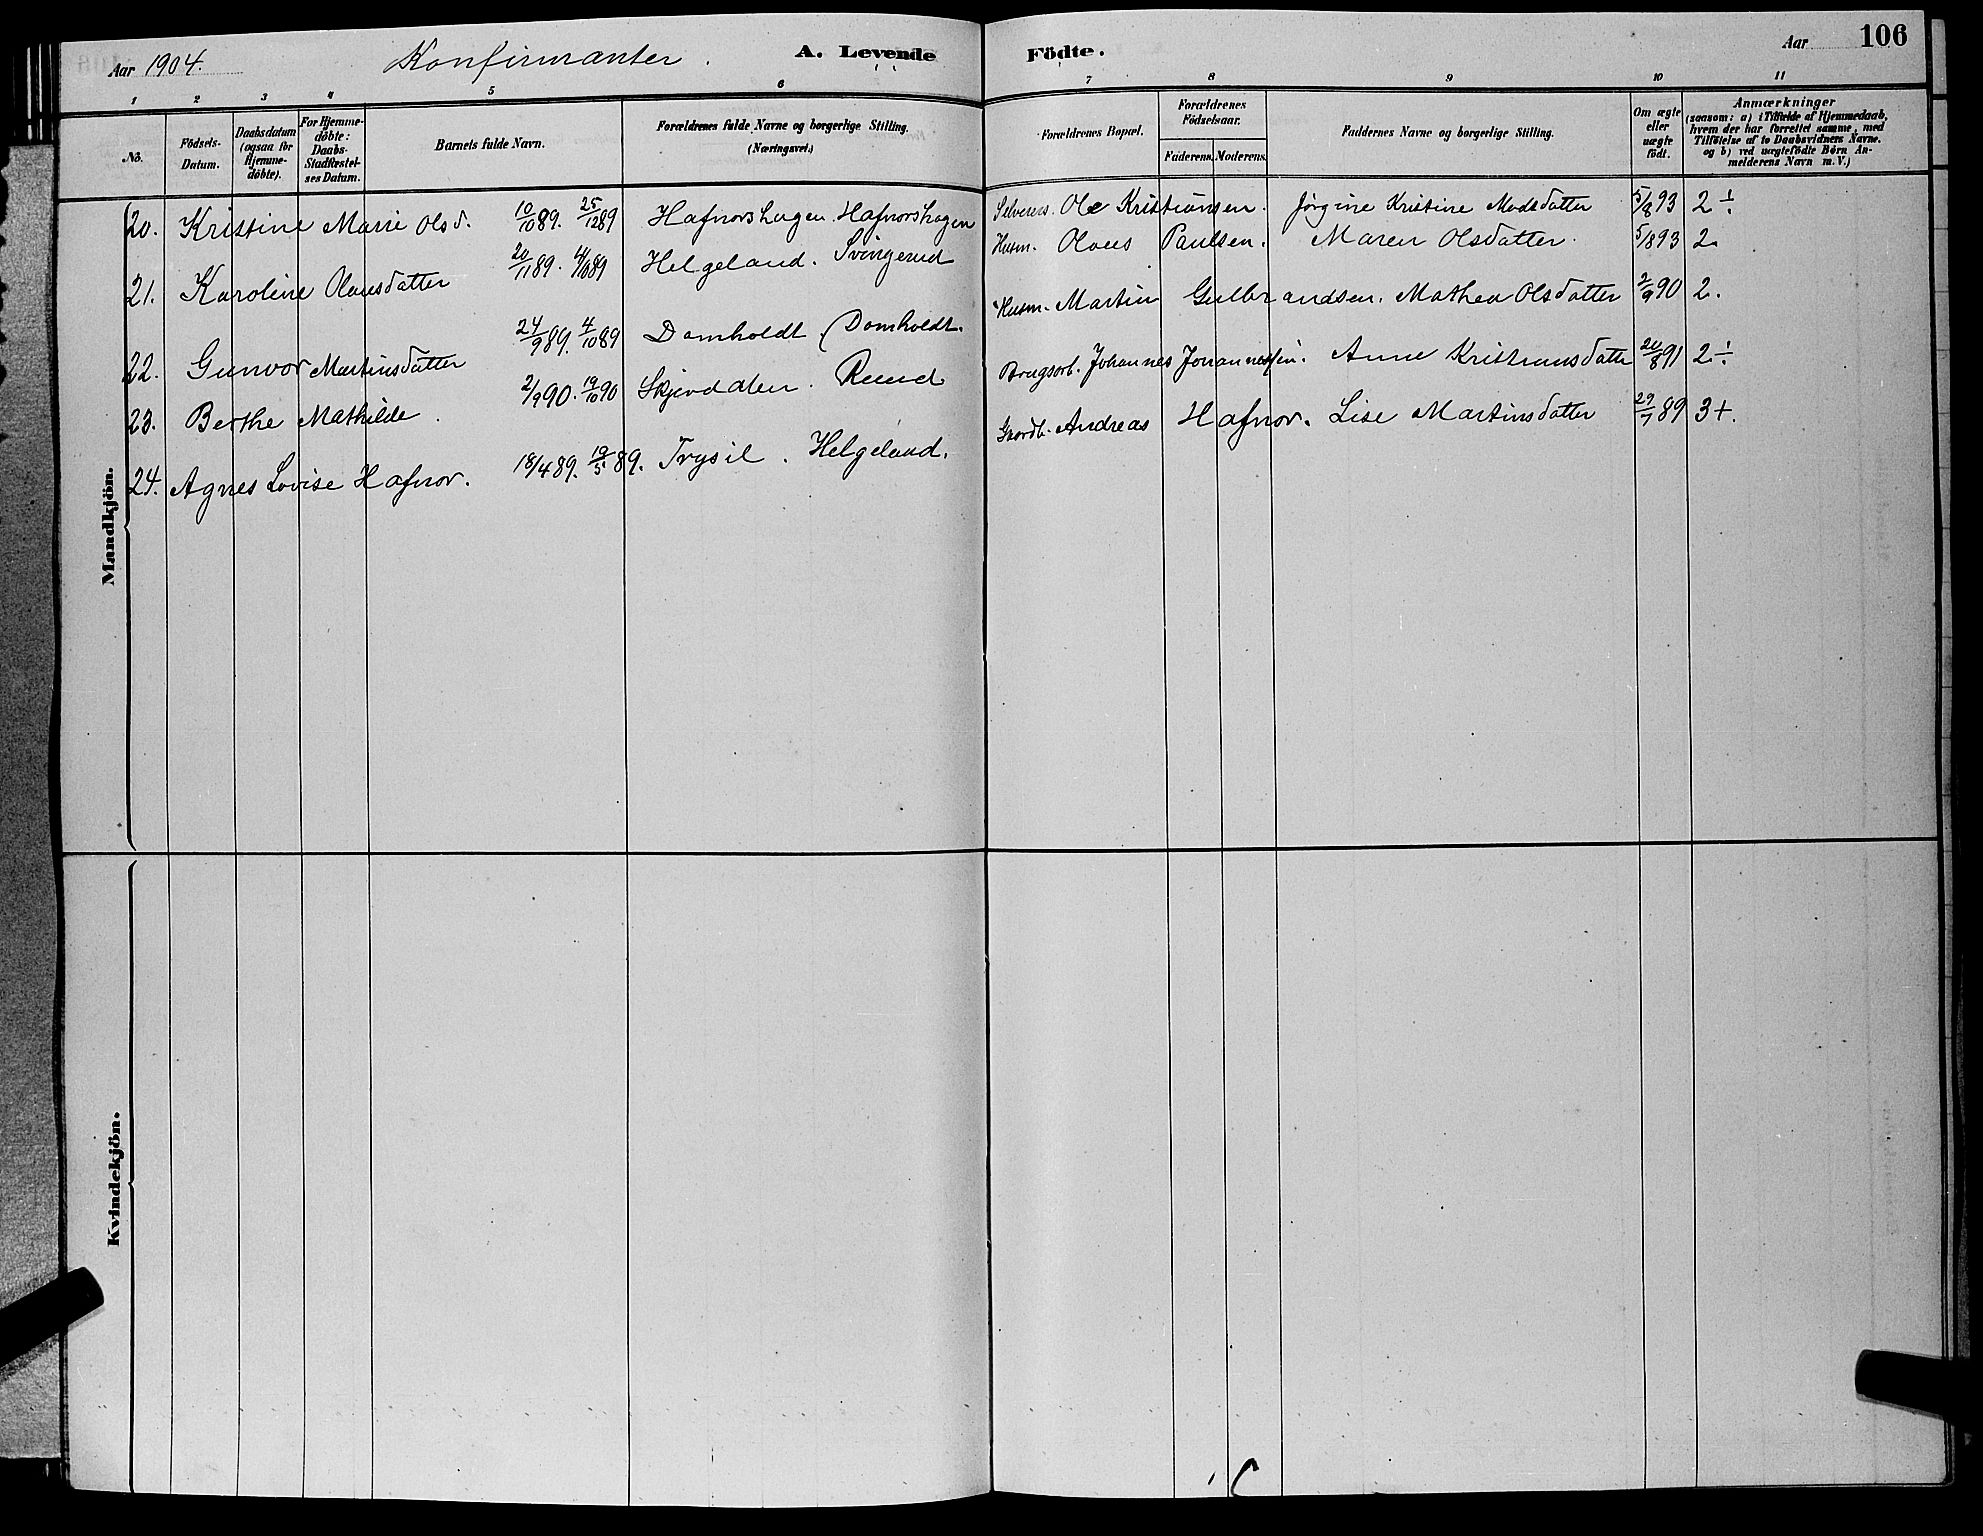 Aar 1904. Konfirmanter. A. Levende Födte. Aar 106
1 2 3 4 5 6 7 8 9 10 11
No.
Födsels-Datum.
Daabsdatum (ogsaa for Hjemme-döbte).
For Hjemme-döbte: Daabs-Stadfæstel-ses Datum.
Barnets fulde Navn.
Forældrenes fulde Navne og borgerlige Stilling. (Næringsvei.)
Forældrenes Bopæl.
Forældrenes Födselsaar.
Faderens. Moderens.
Faddernes Navne og borgerlige Stilling.
Om ægte eller uægte födt.
Anmærkninger (saasom: a) i Tilfælde af Hjemmedaab, hvem der har forrettet samme, med Tilföielse af to Daabsvidners Navne. og b) ved uægtefödte Börn An-melderens Navn m. V.)
20. Kristine Marie Olsd. 10/10 89. 25/12 89 Hafnorshagen. Hafnorshagen Ole Kristiansen. Jørgine Kristine Madsdatter 5/8 93 2 ÷
21. Karoline Olausdatter 20/11 89. 89 Helgeland. Svingerud Husm. Olaus Paulsen. Maren Olsdatter. 5/8 93 2.
22. Gunvor Martinsdatter 24/9 89. 4/10 89 Domholdt. Domholdt. Husm. Martin Gulbrandsen. Mathea Olsdatter 2/9 90 2.
23. Berthe Mathilde. 2/9 90. 19/10 90 Skjerdalen. Ruud Brugsarb. Johannes Johannessen. Anne Kristiansdatter 20/8 91 2 ÷
24. Agnes Lovise Hafnor. 18/4 89. 19/5 89. Trysil. Helgeland. Gaardb. Andreas Hafnor. Lise Martinsdatter 29/7 89 3+.
Mandkjön.
Kvindekjön.